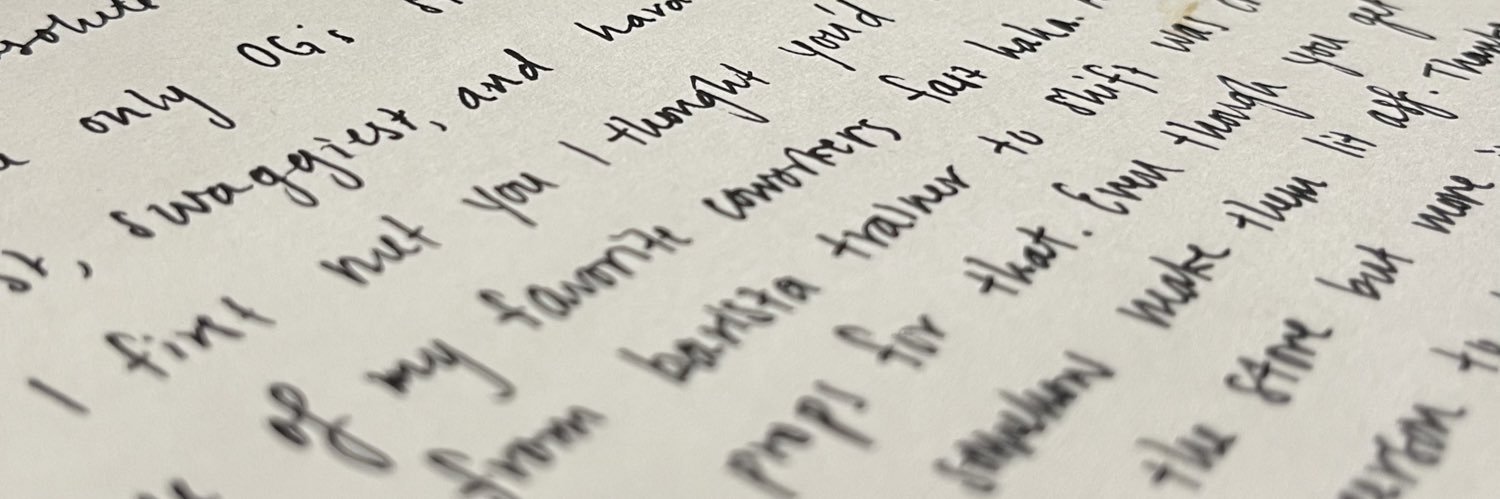 only OG's
swaggiest, and
I first met you I thought you'd
of my favorite coworkers fast haha.
from barista trainer to shift was
props for that. Even though you get
somehow make them lit asf. Thanks
the store but more
to